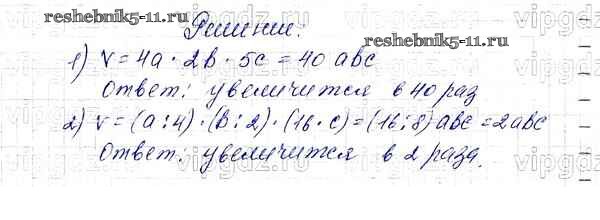 reshebnik5-11.ru
Решение:
reshebnik5-11.ru
1) V = 4a · 2b · 5c = 40 abc
Ответ: увеличится в 40 раз
2) V = (a : 4) · (b : 2) · (16 · c) = (16 : 8) abc = 2abc
Ответ: увеличится в 2 раза.